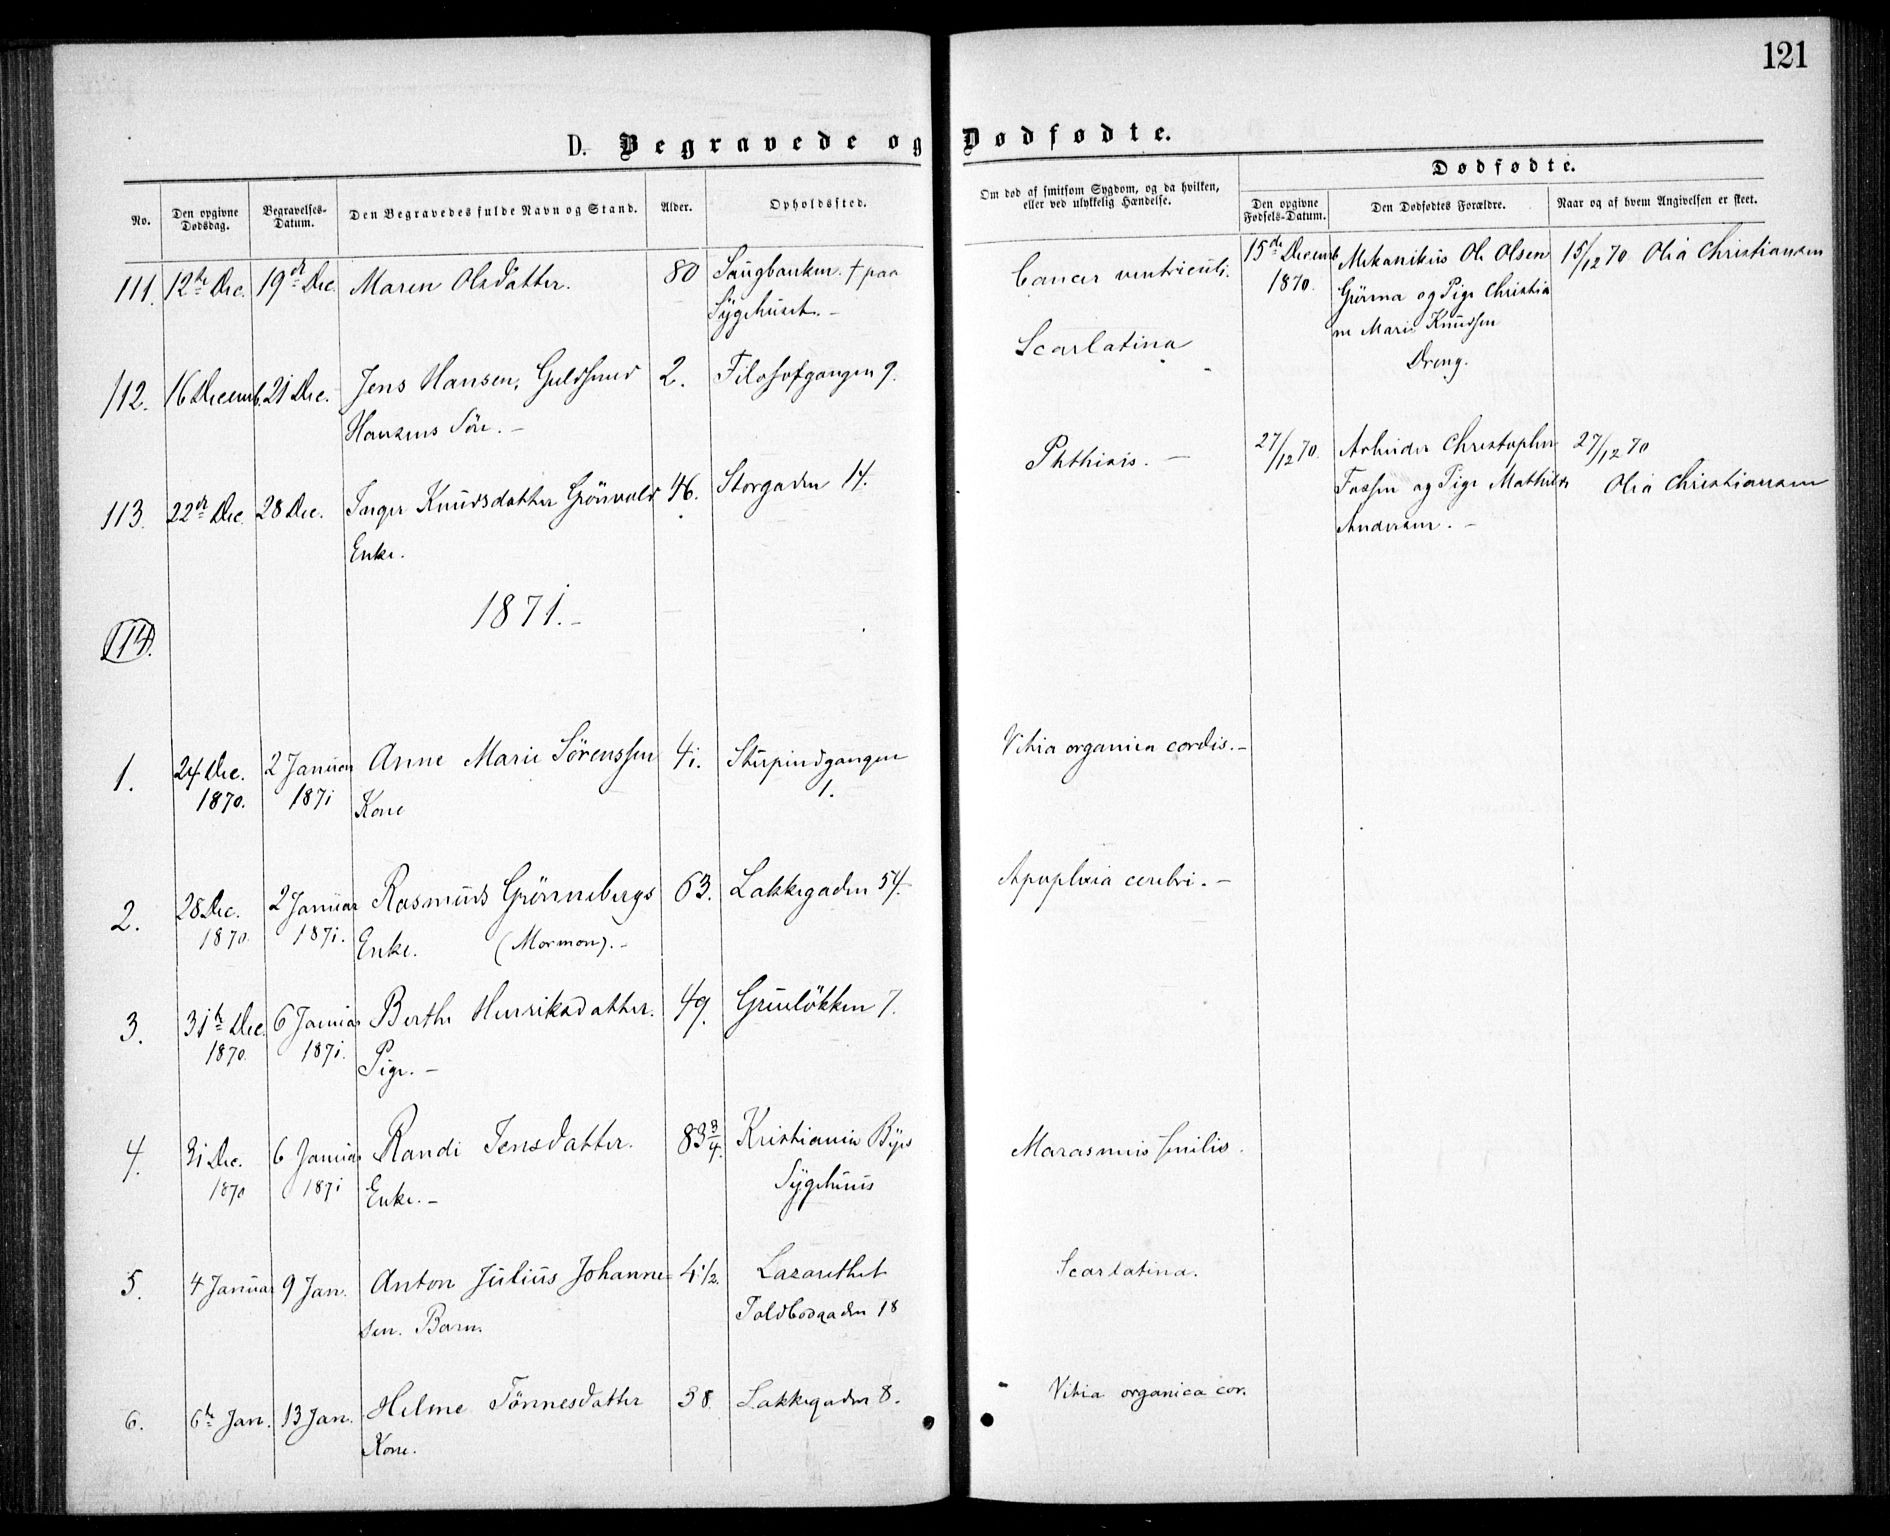 121
D. Begravede og Dødfødte.
No.
Den opgivne Dødsdag.
Begravelses-Datum.
Den Begravedes fulde Navn og Stand.
Alder.
Opholdssted.
Om død af smitsom Sygdom, og da hvilken,
eller ved ulykkelig Hændelse.
Dødfødte.
Den opgivne Fødsels-Datum.
Den Dødfødtes Forældre.
Naar og af hvem Angivelsen er skeet.
111. 12te Dec. 19de Dec. Maren Olsdatter. 80 Saugbanken. † paa
Sygehuset. –
Cancer ventriculi.
15de Decemb. Mekanikus Ole Olsen 15/12 70 Olia Christiansen
1870. og Pige Christia
ne Marie Knudsen
Dreng.
112. 16 Decemb. 21 Dec. Jens Hansen, Guldsmed 2. Filosofgangen 9.
Hansens Sön. –
Scarlatina
113. 22de Dec. 28 Dec. Inger Knudsdatter Grönvold 46. Storgaden 14.
Enke.
Phthisis. –
27/12 70. Arbeider Christopher 27/12 70
Fossen og Pige Mathilde Olia Christiansen
Andersen. –
1871. –
114.
1. 24 Dec. 2 Januar Anne Marie Sörenssen 41. Stupindgangen
1870. 1871 Kone 1.
Vitia organica cordis. –
2. 28 Dec. 2 Januar Rasmus Grönnebergs 63. Lakkegaden 54.
1870. 1871. Enke. (Mormon). –
Apoplexia cerebri. –
3. 31te Dec. 6 Januar Berthe Henriksdatter. 49. Grünlökken 7.
1870. 1871. Pige. –
4. 31 Dec. 6 Januar Randi Jensdatter. 83 3/4. Kristiania Byes
1870 1871 Enke. – Sygehuus
Marasmus senilis.
5. 4 Januar 9 Jan. Anton Julius Johanne- 4 1/2. Lazarethet
sen. Barn. Toldbodgaden 18
Scarlatina.
6. 6te Jan. 13 Jan. Helme Tönnesdatter 38. Lakkegaden 8.
Kone.
Vitia organica cor.